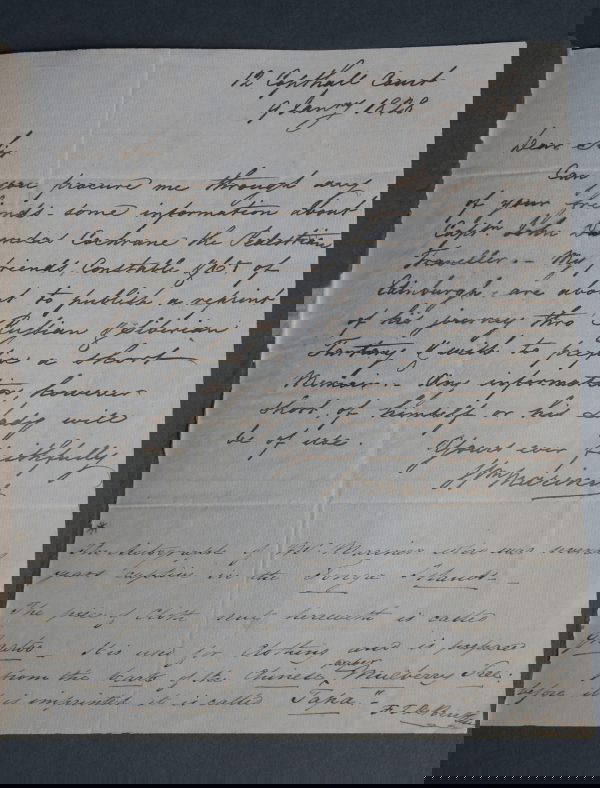 12 Copthall Court
Jany 1828
Dear Sir
Can
you procure me through any
of your friends some information about
Capt John Dundas Cochrane the Pedestrian
Traveller. My
friends Constable & Co of
Edinburgh are about
to publish a reprint
of his journey thro'
Russian & Siberian
Tartary & wish to prefix a short
Memoir. Any information, however
short of himself or his Lady will
be of use.
Yours ever, faithfully
Jn Mariner
The Autograph of Mr. Mariner who was several
years captive in the Tonga Islands
The piece of Cloth sent herewith is called
It is used for Clothing and is prepared
from the bark of the Chinese Mulberry Tree.
paper
before it is imprinted it is called "Tapa."